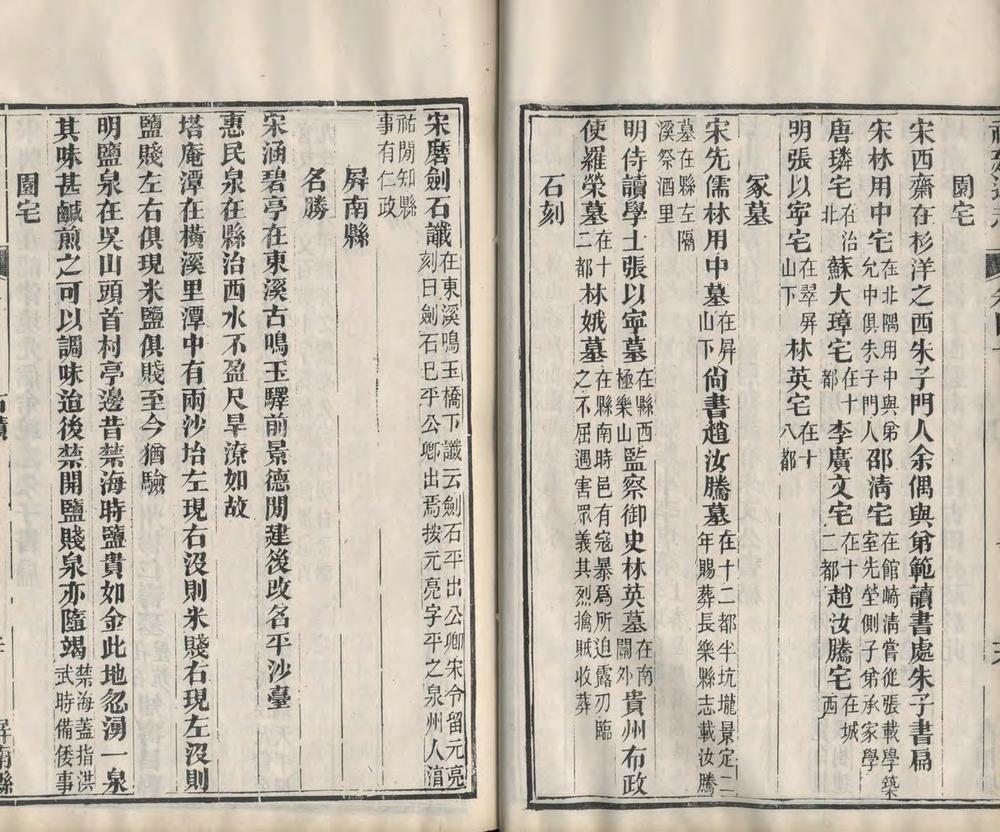 園宅
宋西齋在杉洋之西朱子門人余偶與弟範讀書處朱子書扁
宋林用中宅在北隅用中與弟允中俱朱子門人邵清宅在館崎清嘗從張載學築室先塋側子弟承家學
唐璘宅在治北蘇大璋宅在十都李廣文宅在十二都趙汝騰宅在城西
明張以寧宅在翠屏山下林英宅在十八都
冢墓
宋先儒林用中墓在屏山下尚書趙汝騰墓在十二都半坑壠景定二年賜葬長樂縣志載汝騰
墓在縣左隔溪祭酒里
明侍讀學士張以寧墓在縣西極樂山監察御史林英墓在南關外貴州布政
使羅榮墓在十二都林娥墓在縣南時邑有寇暴爲所迫露刃臨之不屈遇害眾義其烈擒賊收葬
石刻
宋磨劍石讖在東溪鳴玉橋下讖云劍石平出公卿宋令留元亮刻曰劍石已平公卿出焉按元亮字平之泉州人淯
祐閒知縣事有仁政
屏南縣
名勝
宋涵碧亭在東溪古鳴玉驛前景德閒建後改名平沙臺
惠民泉在縣治西水不盈尺旱潦如故
塔庵潭在橫溪里潭中有兩沙坮左現右沒則米賤右現左沒則
鹽賤左右俱現米鹽俱賤至今猶驗
明鹽泉在吳山頭首村亭邊昔禁海時鹽貴如金此地忽湧一泉
其味甚鹹煎之可以調味迨後禁開鹽賤泉亦隨竭禁海蓋指洪武時備倭事
園宅
屏南縣